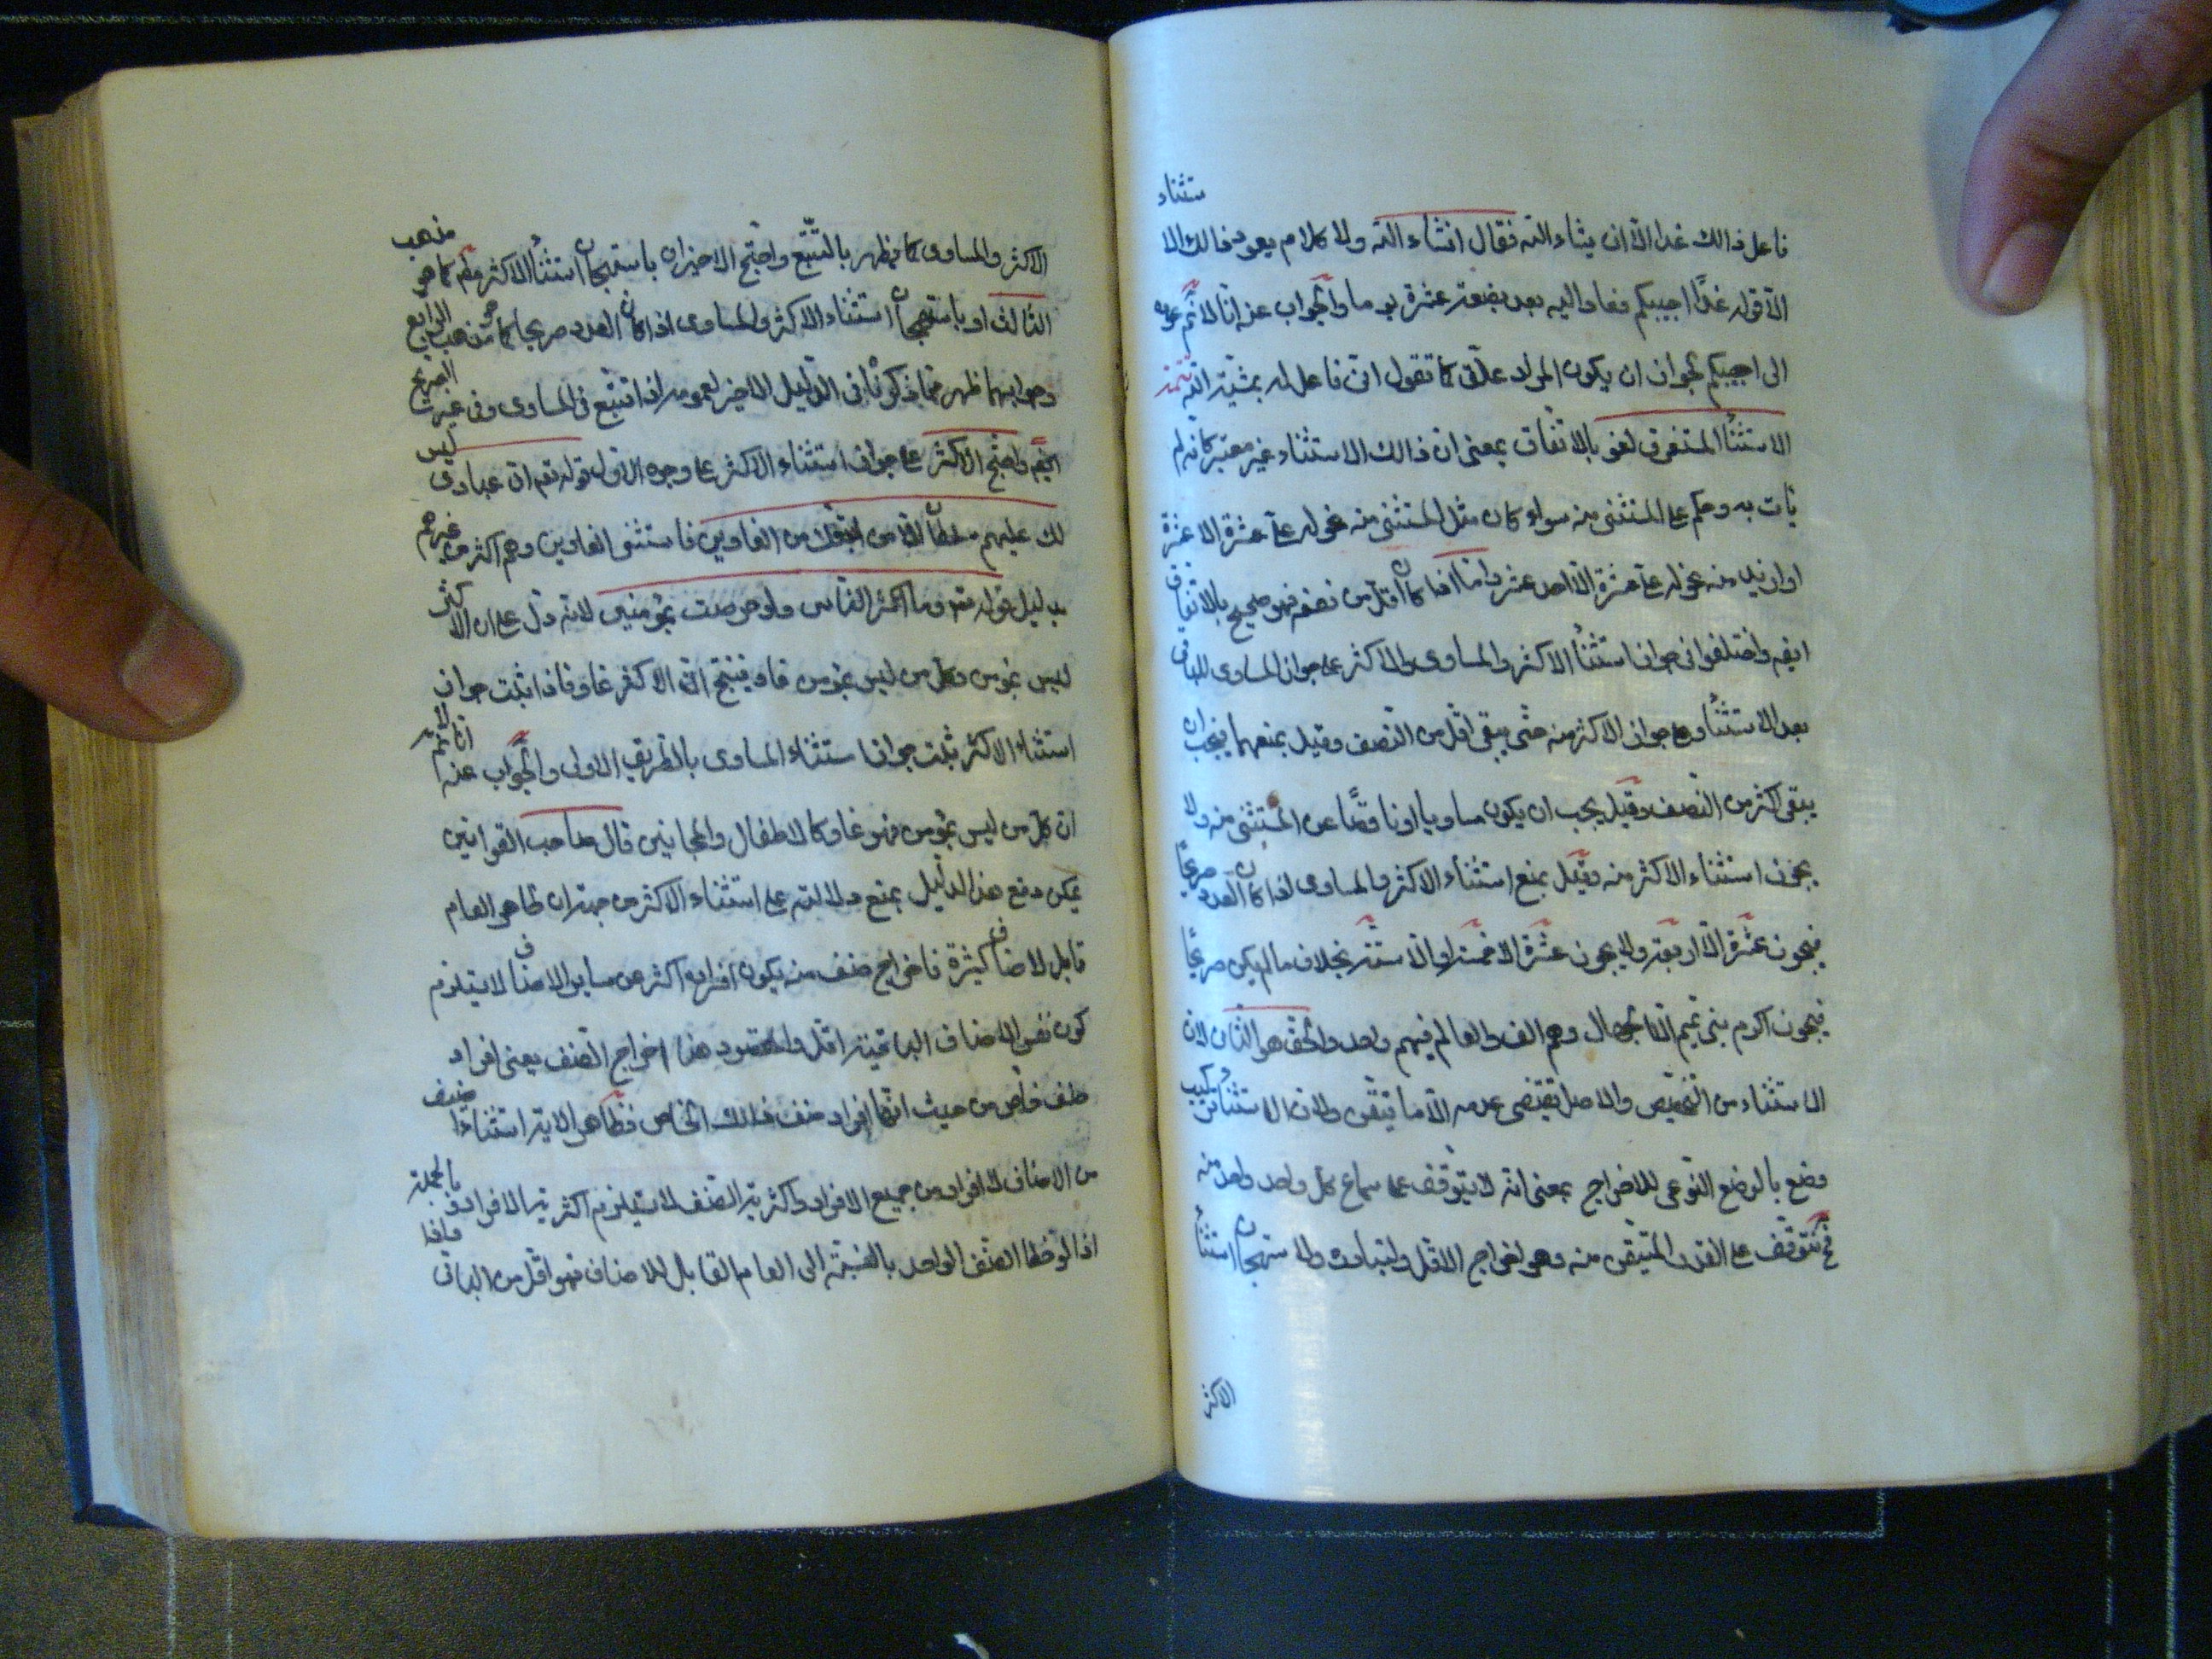 فاعل ذالك غدا الّا ان يشاء الله فقال انشاء الله ولا كلام يعود ذالك الاستثناء
الّا قوله غدًا اجيبكم فعاد اليه بعد بضعة عشرة يوما والجواب عنه انّا لانم عوده
الى اجيبكم لجواز ان يكون المراد علّق كما تقول انى فاعل له بمشيّة الله تتمة
الاستثناء المستغرق لغو بالاتفاق بمعنى ان ذالك الاستثناء غير معتبر كانه لم
يأت به وحكم على المستثنى منه سواء كان مثل المستثنى منه نحو له علىّ عشرة الا عشرة
او ازيد منه نحو له علىّ عشرة الّا احد عشر وامّا اذا كان اقلّ من نصفه فهو صحيح بالاتفاق
ايضم واختلفوا فى جواز استثناء الاكثر والمساوى والاكثر على جواز المساوى للباقى
بعد الاستثناء وعلى جواز الاكثر منه حتّى يبقى اقل من النّصف وقيل بمنعهما فيجب ان
يبقى اكثر من النّصف وقيل يجب ان يكون مساويا او ناقصًا عن المستثنى منه ولا
يجوز استثناء الاكثر منه وقيل بمنع استثناء الاكثر والمساوى اذا كان العدد صريحًا
فيجوز عشرة الّا اربعة ولا يجوز عشرة الا خمسة او الّا ستّة بخلاف ما لم يكن صريحًا
فيجوز اكرم بنى تميم الّا الجهال وهم الف والعالم فيهم واحد والحقّ هو الثّانى لان
الاستثناء من التّخصيص والاصل يقتضى عدمه الّا ما تيقّن ولان الاستثناء تركيب
وضع بالوضع النّوعى للاخراج بمعنى انّه لا يتوقّف على سماع كلّ واحد واحد منه
فح نتوقّف على القدر المتيقّن منه وهو اخراج الاقلّ ولتبادره ولاستهجان استثناء
الاكثر
الاكثر والمساوى كما يظهر بالتّتبّع واحتجّ الاخيران باستهجان استثناء الاكثر منهم كما هو مذهب
الثالث او باستهجان استثناء الاكثر والمساوى اذا كان العدد صريحا كما هو مذهب الرّابع
وجوابهما ظهر ممّا ذكرنا فى الدّليل الاخير لعمومه اذا تتبّع فى المساوى وفى غير الصريح
ايضم واحتجّ الاكثر على جواز استثناء الاكثر على وجوه الاول قوله تعم ان عبادى ليس
لك عليهم سلطان الّا من اتبعك من الغاوين فاستثنى الغاوين وهم اكثر من غيرهم
بدليل قوله تعم وما اكثر النّاس ولو حرصت بمؤمنين لانّه دلّ على ان الاكثر
ليس بمؤمن وكلّ من ليس بمؤمن غاو فينتج انّ الاكثر غاو فاذا ثبت جواز
استثناء الاكثر ثبت جواز استثناء المساوى بالطّريق الاولى والجواب عنه انّا لانم
ان كلّ من ليس بمؤمن فهو غاو كالاطفال والمجانين قال صاحب القوانين
يمكن دفع هذا الدليل بمنع دلالته على استثناء الاكثر من جهة ان ظاهر العام
قابل لاصناف كثيرة فاخراج صنف منه يكون افراده اكثر من ساير الاصناف لا يستلزم
كون نفس الاصناف الباقية اقل والمقصود هنا اخراج الصّنف يعنى افراد
صنف خاص من حيث انّها افراد صنف ذلك الخاص فظاهر الاية استثناء صنف
من الاصناف لا افراد من جميع الافراد واكثرية الصّنف لا يستلزم اكثرية الافراد وبالجملة
اذا لوحظ الصّنف الواحد بالنسبة الى العام القابل للاصناف فهو اقل من الباقى واذا